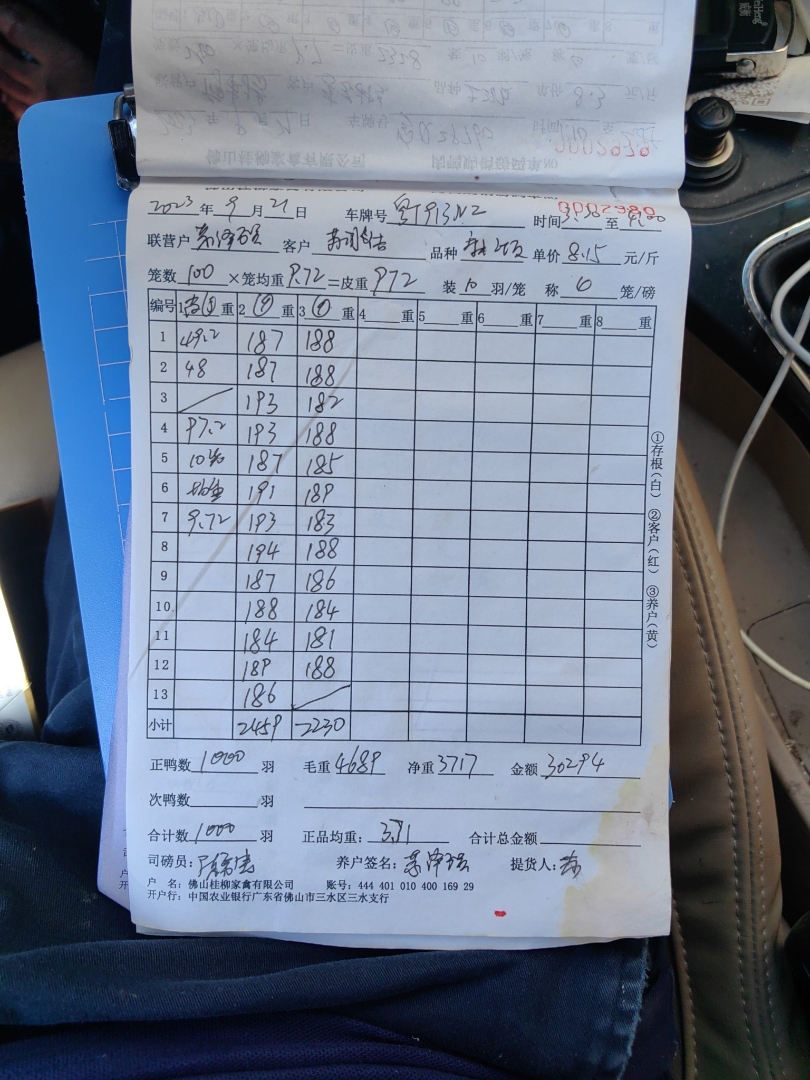 0002979
2023年9月21日 车牌号 粤T913N2 时间 至
联营户 客户 品种 单价8.15元/斤
笼数100×笼均重9.72=皮重972 装10羽/笼 称6笼/磅
编号 1 重 2 ⑨ 重 3 ⑦ 重 4 重 5 重 6 重 7 重 8 重
1 49.2 187 188
2 48 187 188
3 193 182
4 97.2 193 188
5 187 185
6 191 189
7 9.72 193 183
8 194 188
9 187 186
10 188 184
11 184 181
12 189 188
13 186
小计 2459 2230
正鸭数1000羽 毛重4689 净重3717 金额30294
次鸭数 羽
合计数1000羽 正品均重: 3.71 合计总金额
司磅员: 养户签名: 提货人:
户 名: 佛山桂柳家禽有限公司 账号: 444 401 010 400 169 29
开户行: 中国农业银行广东省佛山市三水区三水支行
①存根(白) ②客户(红) ③养户(黄)